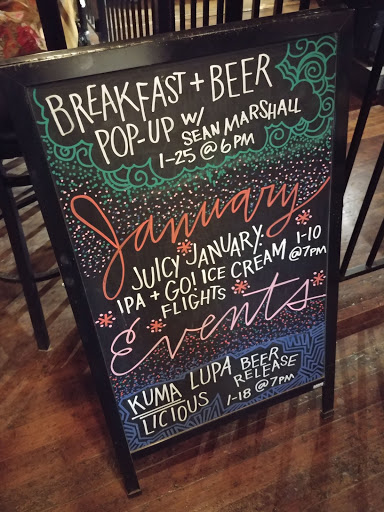 BREAKFAST + BEER
POP-UP W/ SEAN MARSHALL
1-25 @ 6PM
January
JUICY JANUARY: 1-10
IPA + GO! ICE CREAM @7PM
FLIGHTS
Events
KUMA LUPA BEER
LICIOUS RELEASE
1-18 @ 7PM